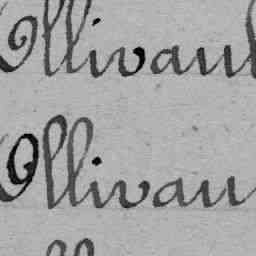 Ollivaul
Ollivau